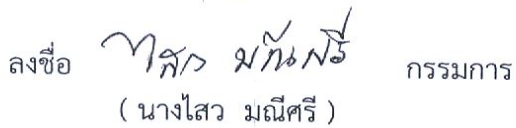 ลงชื่อ ไสว มณีศรี กรรมการ
( นางไสว มณีศรี )